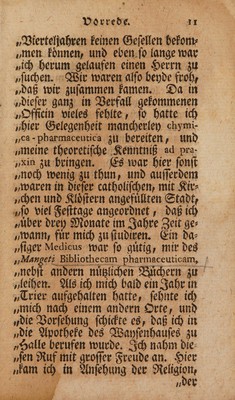 Vorrede. 11
„Vierteljahren keinen Gesellen bekom-
„men können, und eben so lange war
„ich herum gelaufen einen Herrn zu
„suchen. Wir waren also beyde froh,
„daß wir zusammen kamen. Da in
„dieser ganz in Verfall gekommenen
„Officin vieles fehlte, so hatte ich
„hier Gelegenheit mancherley chymi-
„ca-pharmaceutica zu bereiten, und
„meine theoretische Kenntniß ad pra-
„xin zu bringen. Es war hier sonst
„noch wenig zu thun, und ausserdem
„waren in dieser catholischen, mit Kir-
„chen und Klöstern angefüllten Stadt,
„so viel Festtage angeordnet, daß ich
„über drey Monate im Jahre Zeit ge-
„wann, für mich zu studiren. Ein da-
„siger Medicus war so gütig, mir des
„Mangeti Bibliothecam pharmaceuticam,
„nebst andern nützlichen Büchern zu
„leihen. Als ich mich bald ein Jahr in
„Trier aufgehalten hatte, sehnte ich
„mich nach einem andern Orte, und
„die Vorsehung schickte es, daß ich in
„die Apotheke des Waysenhauses zu
„Halle berufen wurde. Ich nahm die-
„sen Ruf mit grosser Freude an. Hier
„kam ich in Ansehung der Religion,
„der